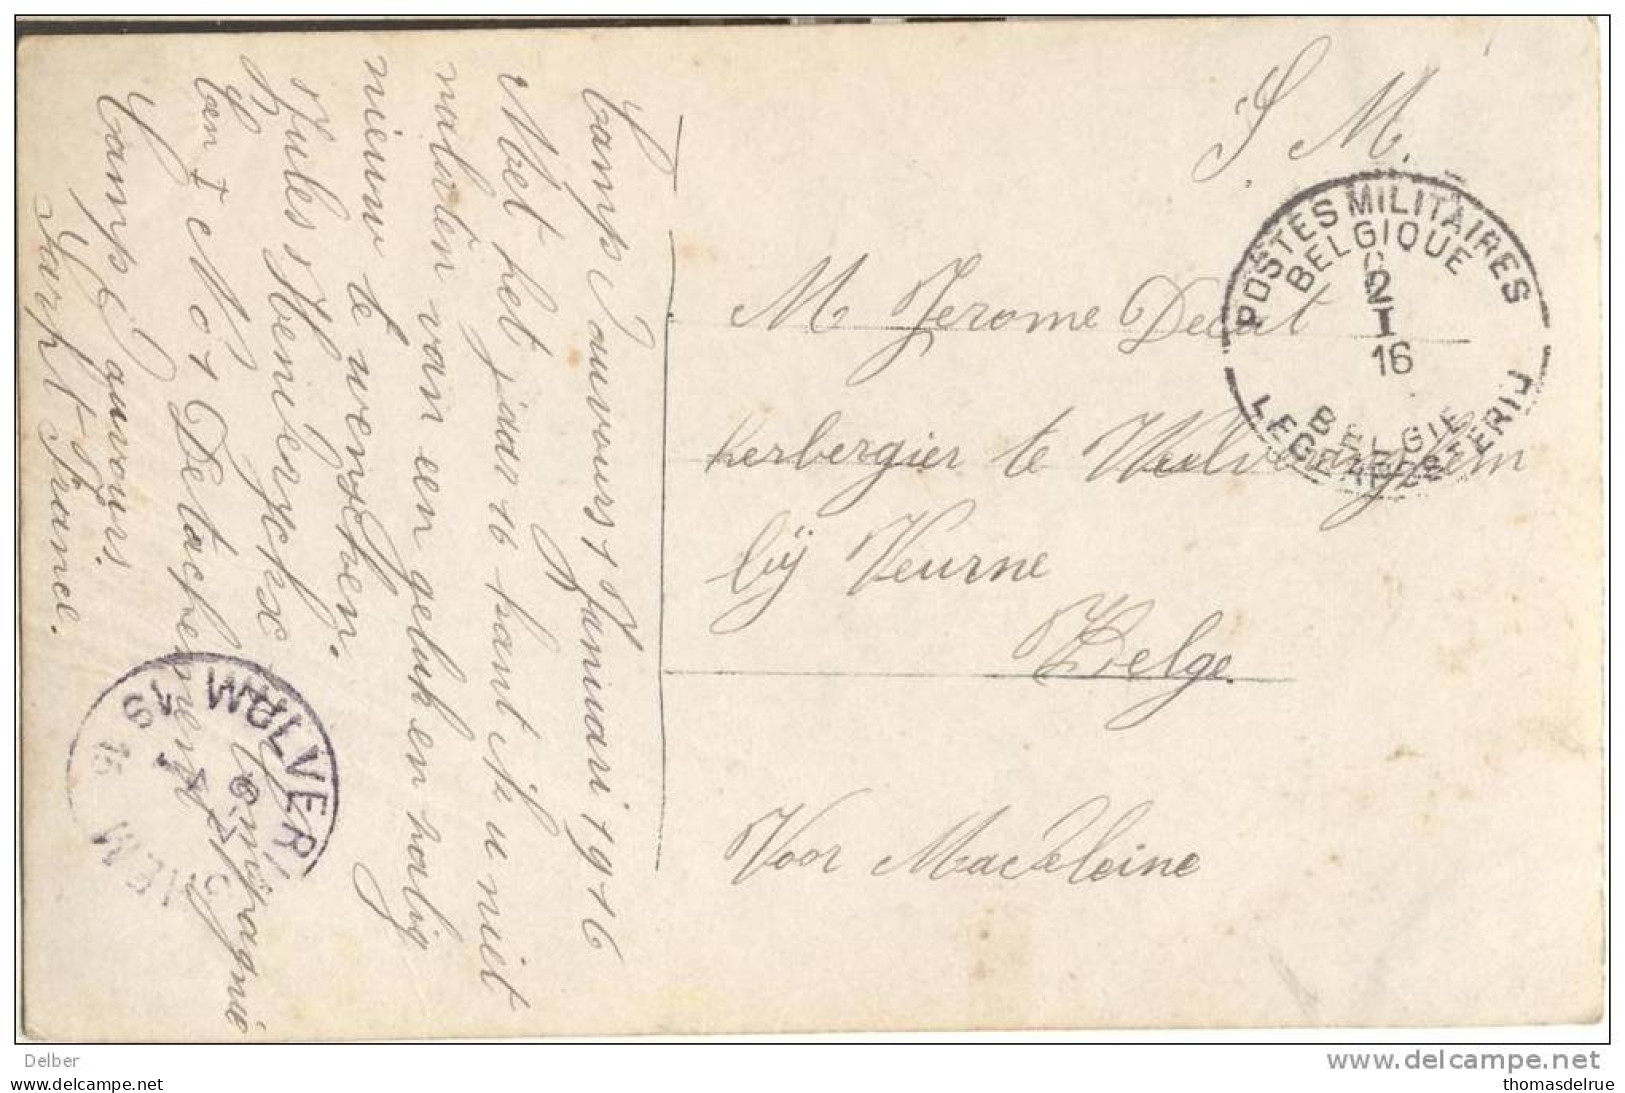 Camp d'auvours 1 Januari 1916
Met het jaar 16 kant ik u niet
nalaten van een geluk en zalig
nieuw te wenschen.
Jules
B Compagnie
Cen I N° 1 Detachement
Camp d'auvours.
Sarpht France.
S. M.
POSTES MILITAIRES
BELGIQUE
2
I
16
BELGIE
LEGERPOSTERIJ
M Jerome Decat
herbergier te Wulveringhem
bij Veurne
Belge
Voor Madeleine
WULVERINGHEM
Delber
www.delcampe.net
thomasdelrue